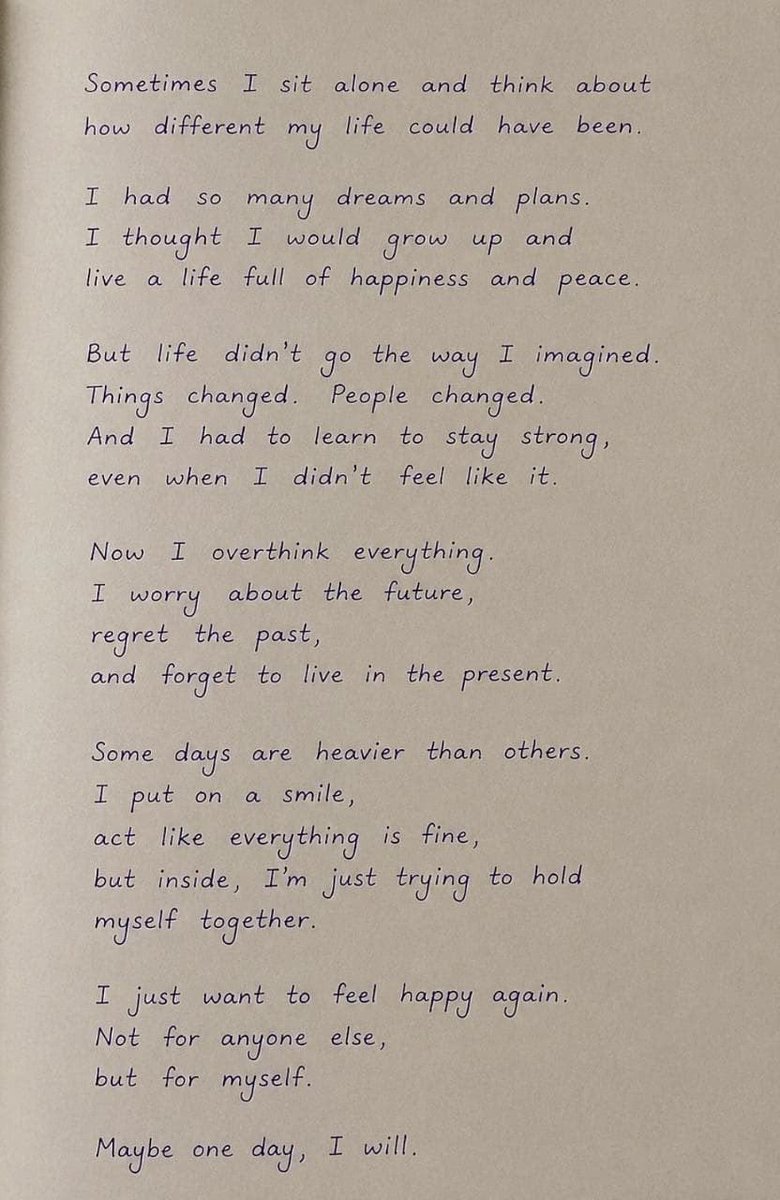 Sometimes I sit alone and think about
how different my life could have been.
I had so many dreams and plans.
I thought I would grow up and
live a life full of happiness and peace.
But life didn't go the way I imagined.
Things changed. People changed.
And I had to learn to stay strong,
even when I didn't feel like it.
Now I overthink everything.
I worry about the future,
regret the past,
and forget to live in the present.
Some days are heavier than others.
I put on a smile,
act like everything is fine,
but inside, I'm just trying to hold
myself together.
I just want to feel happy again.
Not for anyone else,
but for myself.
Maybe one day, I will.